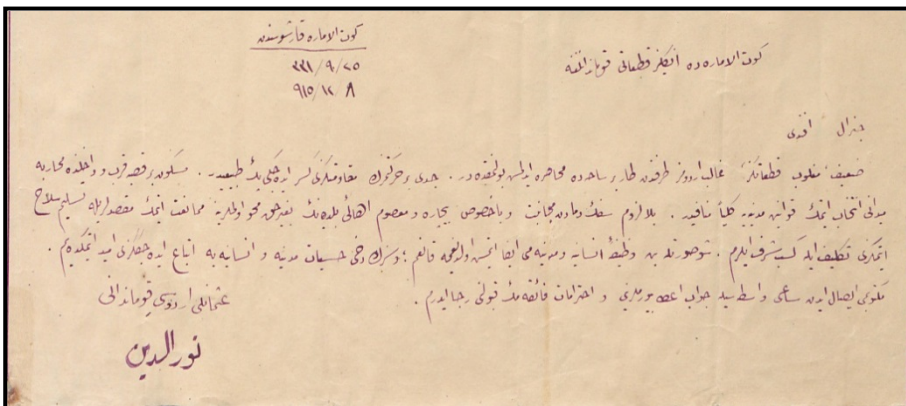 كوت الاماره قارشوسندن
٢٥/٩/٣٣١
٨/١٢/٩١٥
كوت الاماره ده انكليز قطعاتى قوماندانلغنه
جنرال افندى
ضعيف مغلوب قطعاتكز غالب اردومز طرفندن طار بر ساحه ده محاصره ايدلمش بولنمقده در. جدى بر حركتمزك مقاومتكزى كسر ايده جكى پك طبيعيدر. مسكون بر قصبه قرب و داخلنده محاربه
ميدانى انتخاب ايتمك قوانين مدنيه يه كلياً منافيدر. بلا لزوم سفك دمادن مجانبت و باخصوص بيچاره و معصوم اهالئ بلده نك بغير حق محو اولملرينه ممانعت ايتمك مقصديله تسليم سلاح
ايتمكزى تكليف ايله كسب شرف ايلرم. شو صورتله بن وظيفهٔ انسانيه و مدنيه مى ايفا ايتمش اولديغمه قانعم؛ سزك دخى حسيات مدنيه و انسانيه يه اتباع ايده جككزى اميد ايتمكده يم.
مكتوبمى ايصال ايدن ساعى واسطه سيله جواب اعطا بيورملرينى و احترامات فائقه مك قبولنى رجا ايدرم.
عثمانلى اردوسى قوماندانى
نور الدين